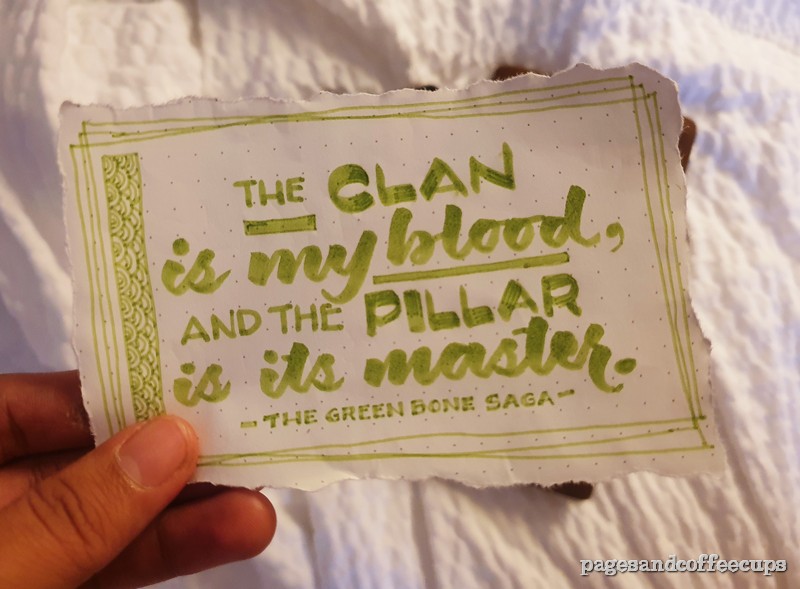 THE CLAN
is my blood,
AND THE PILLAR
is its master.
-THE GREEN BONE SAGA-
pagesandcoffeecups